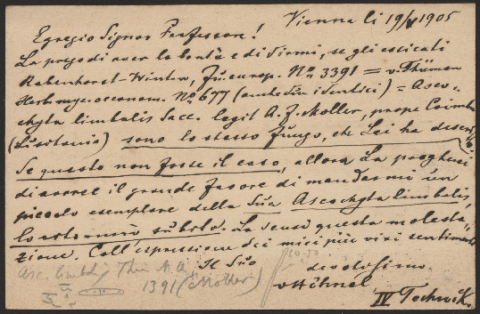 Vienna li 19/V 1905
Egregio Signor Professore!
La prego di aver la bontà e di dirmi, se gli essicati
Rabenhorst-Winter, Fg. europ. No 3391 = v. Thümen
Herb. myc. oeconom. No 677 (ambedui identici) = Asco-
chyta limbalis Sacc. legit A. F. Moller, prope Coimbra
(Lusitania) sono lo stesso fungo, che Lei ha descritto
Se questo non fosse il caso, allora La pregherei
di avere il grande favore di mandarmi un
piccolo esemplare della Sua Ascochyta limbalis,
lo ritornerò subito. La scusi questa molesta-
zione. Coll'espressione dei miei più vivi sentimenti
Il Suo
devotissimo
v Höhnel
IV Technik.
Asc.
1391 (Moller)